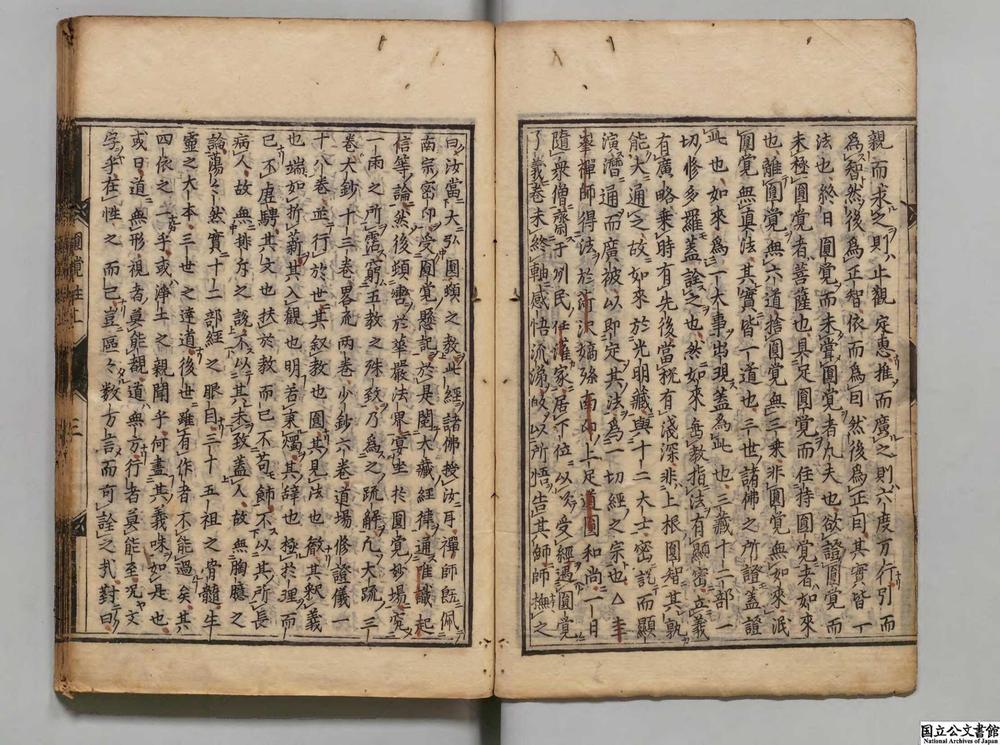 親而求之則止觀定惠推而廣之則六度万行引而
為智然後為正智依而為曰然後為正曰其實皆一
法也終日圓覺而未甞圓覺者凡夫也欲證圓覺而
未極圓覺者菩薩也具足圓覺而住持圓覺者如來
也離圓覺無六道捨圓覺無三乗非圓覺無如來泯
圓覺無真法其實皆一道也三世諸佛之所證蓋證
此也如來為一大事出現蓋為此也三藏十二部一
切修多羅蓋詮之也然如來垂教指法有顯密立義
有廣略乗時有先後當機有淺深非上根圓智其孰
能大通之故如來於光明藏與十二大士密說而顯
演潛通而廣被以即定其法為一切經之宗也△圭
峯禪師得法於荷沢嫡孫南印上足道圓和尚一日
隨衆僧齋于州民任灌家居下位以次受經遇圓覺
了義卷未終軸感悟流涕皈以所悟告其師師撫之
曰汝當大弘圓頓之教此經諸佛授汝耳禪師既佩
南宗密印受圓覺懸記於是閱大藏經律通唯識起
信等論然後頓轡於華嚴法界宴坐於圓覺妙場究
一雨之所霑窮五教之殊致乃為之疏解凡大疏三
卷大鈔十三卷畧疏兩卷少鈔六卷道場修證儀一
十八卷並行於世其叙教也圓其見法也徹其釈義
也端如折薪其入觀也明若秉燭其辞也極於理而
已不虚騁其文也扶於教而已不苟飾不以其所長
病人故無排斥之說不以其未致蓋人故無胸臆之
論蕩〻然實十二部經之眼目三十五祖之骨髓生
靈之大本三世之達道後世雖有作者不能過矣其
四依之一乎或淨土之親聞乎何盡其義味如是也
或曰道無形視者莫能覩道無方行者莫能至况文
字乎在性之而已豈區々数万言而可詮之㢤對曰
三
国立公文書館
National Archives of Japan